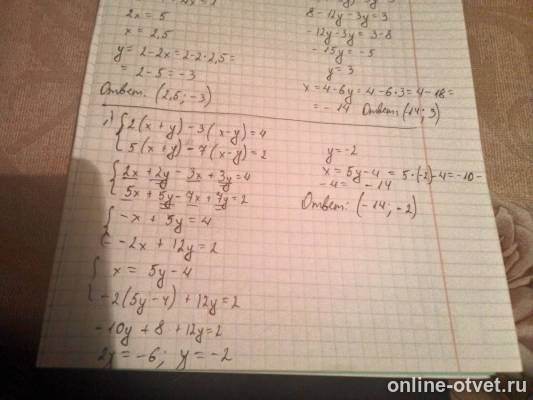 2x = 5
x = 2,5
y = 2 - 2x = 2 - 2·2,5 =
= 2 - 5 = -3
Ответ: (2,5; -3)
8 - 12y - 3y = 3
-12y - 3y = 3 - 8
-15y = -5
y = 3
x = 4 - 6y = 4 - 6·3 = 4 - 18 =
= -14 Ответ: (14; 3)
{ 2(x + y) - 3(x - y) = 4
5(x + y) - 7(x - y) = 2
{ 2x + 2y - 3x + 3y = 4
5x + 5y - 7x + 7y = 2
{ -x + 5y = 4
-2x + 12y = 2
{ x = 5y - 4
-2(5y - 4) + 12y = 2
-10y + 8 + 12y = 2
2y = -6; y = -2
y = -2
x = 5y - 4 = 5·(-2) - 4 = -10 -
-4 = -14
Ответ: (-14; -2)
online-otvet.ru